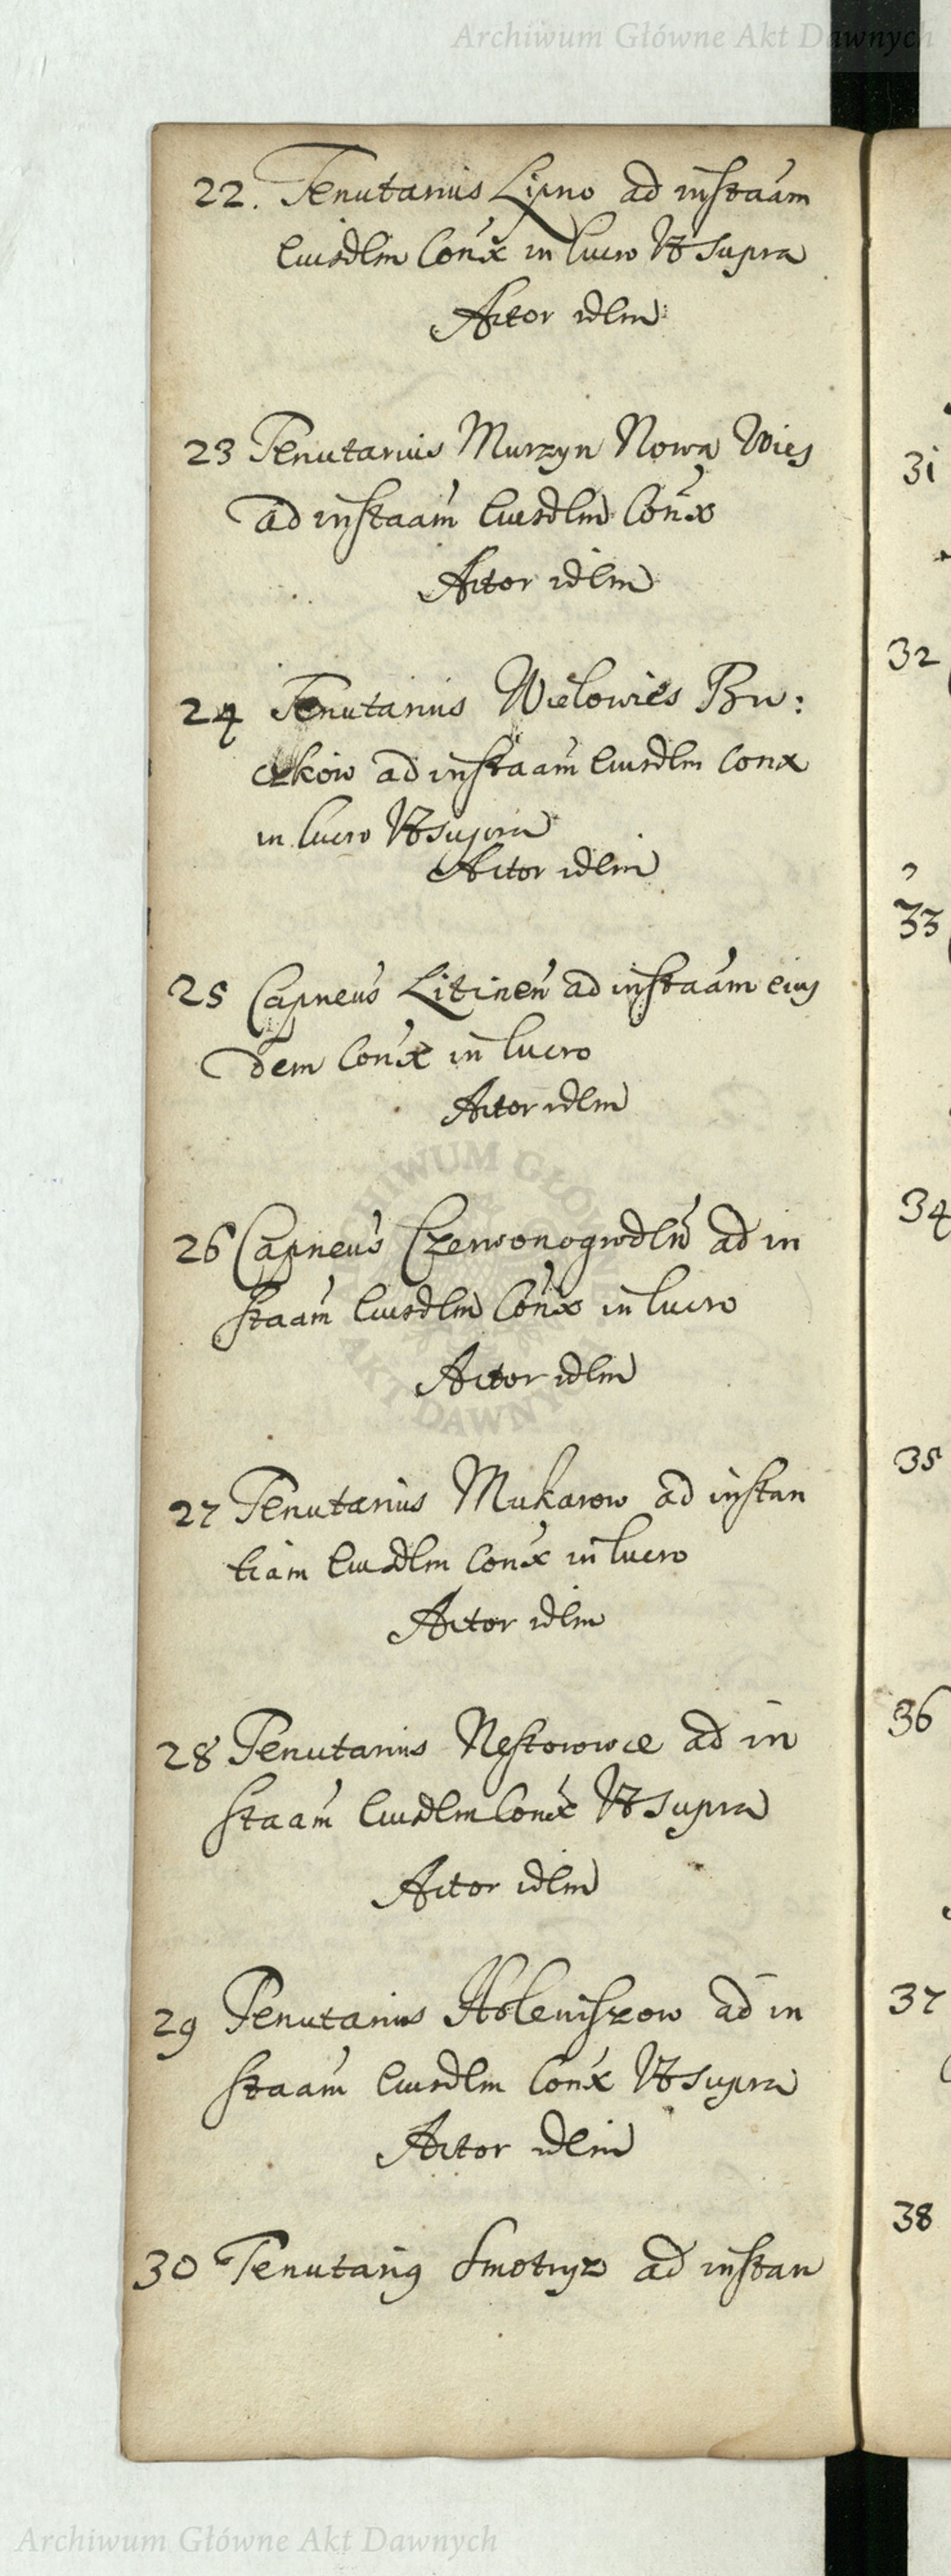 Archiwum Główne Akt Dawnych
22. Tenutarius Lipno ad instaam
Eiusdlm Conx in lucro Vt supra
Actor idlm
23 Tenutarius Murzyn Nowa Wies
ad instaam Eiusdlm Conx
Actor idlm
24 Tenutarius Wielowies Bu:
czkow ad instaam Eiusdlm Conx
in lucro Vt supra
Actor idlm
25 Capneus Litinen ad instaam eius
dem Conx in lucro
Actor idlm
26 Capneus Czerwonogrodln ad in
staam Eiusdlm Conx in lucro
Actor idlm
27 Tenutarius Mukarow ad instan
tiam Eiusdlm Conx in lucro
Actor idlm
28 Tenutarius Nestorowce ad in
staam Eiusdlm Conx Vt supra
Actor idlm
29 Tenutarius Holeniszow ad in
staam Eiusdlm Conx Vt supra
Actor idlm
30 Tenutarius Smotrycz ad instan
31
32
33
34
35
36
37
38
ARCHIWUM GŁÓWNE AKT DAWNYCH
Archiwum Główne Akt Dawnych